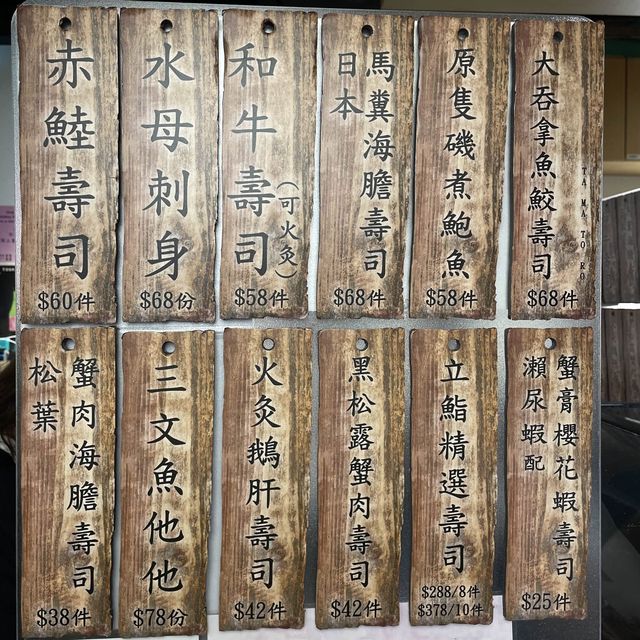 赤鯥壽司
$60件
水母刺身
$68份
和牛壽司
(可火灸)
$58件
日本
馬糞海膽壽司
$68件
原隻磯煮鮑魚
$58件
大吞拿魚鮫壽司
TA MA TO RO
$68件
松葉
蟹肉海膽壽司
$38件
三文魚他他
$78份
火灸鵝肝壽司
$42件
黑松露蟹肉壽司
$42件
立鮨精選壽司
$288/8件
$378/10件
瀨尿蝦配
蟹膏櫻花蝦壽司
$25件